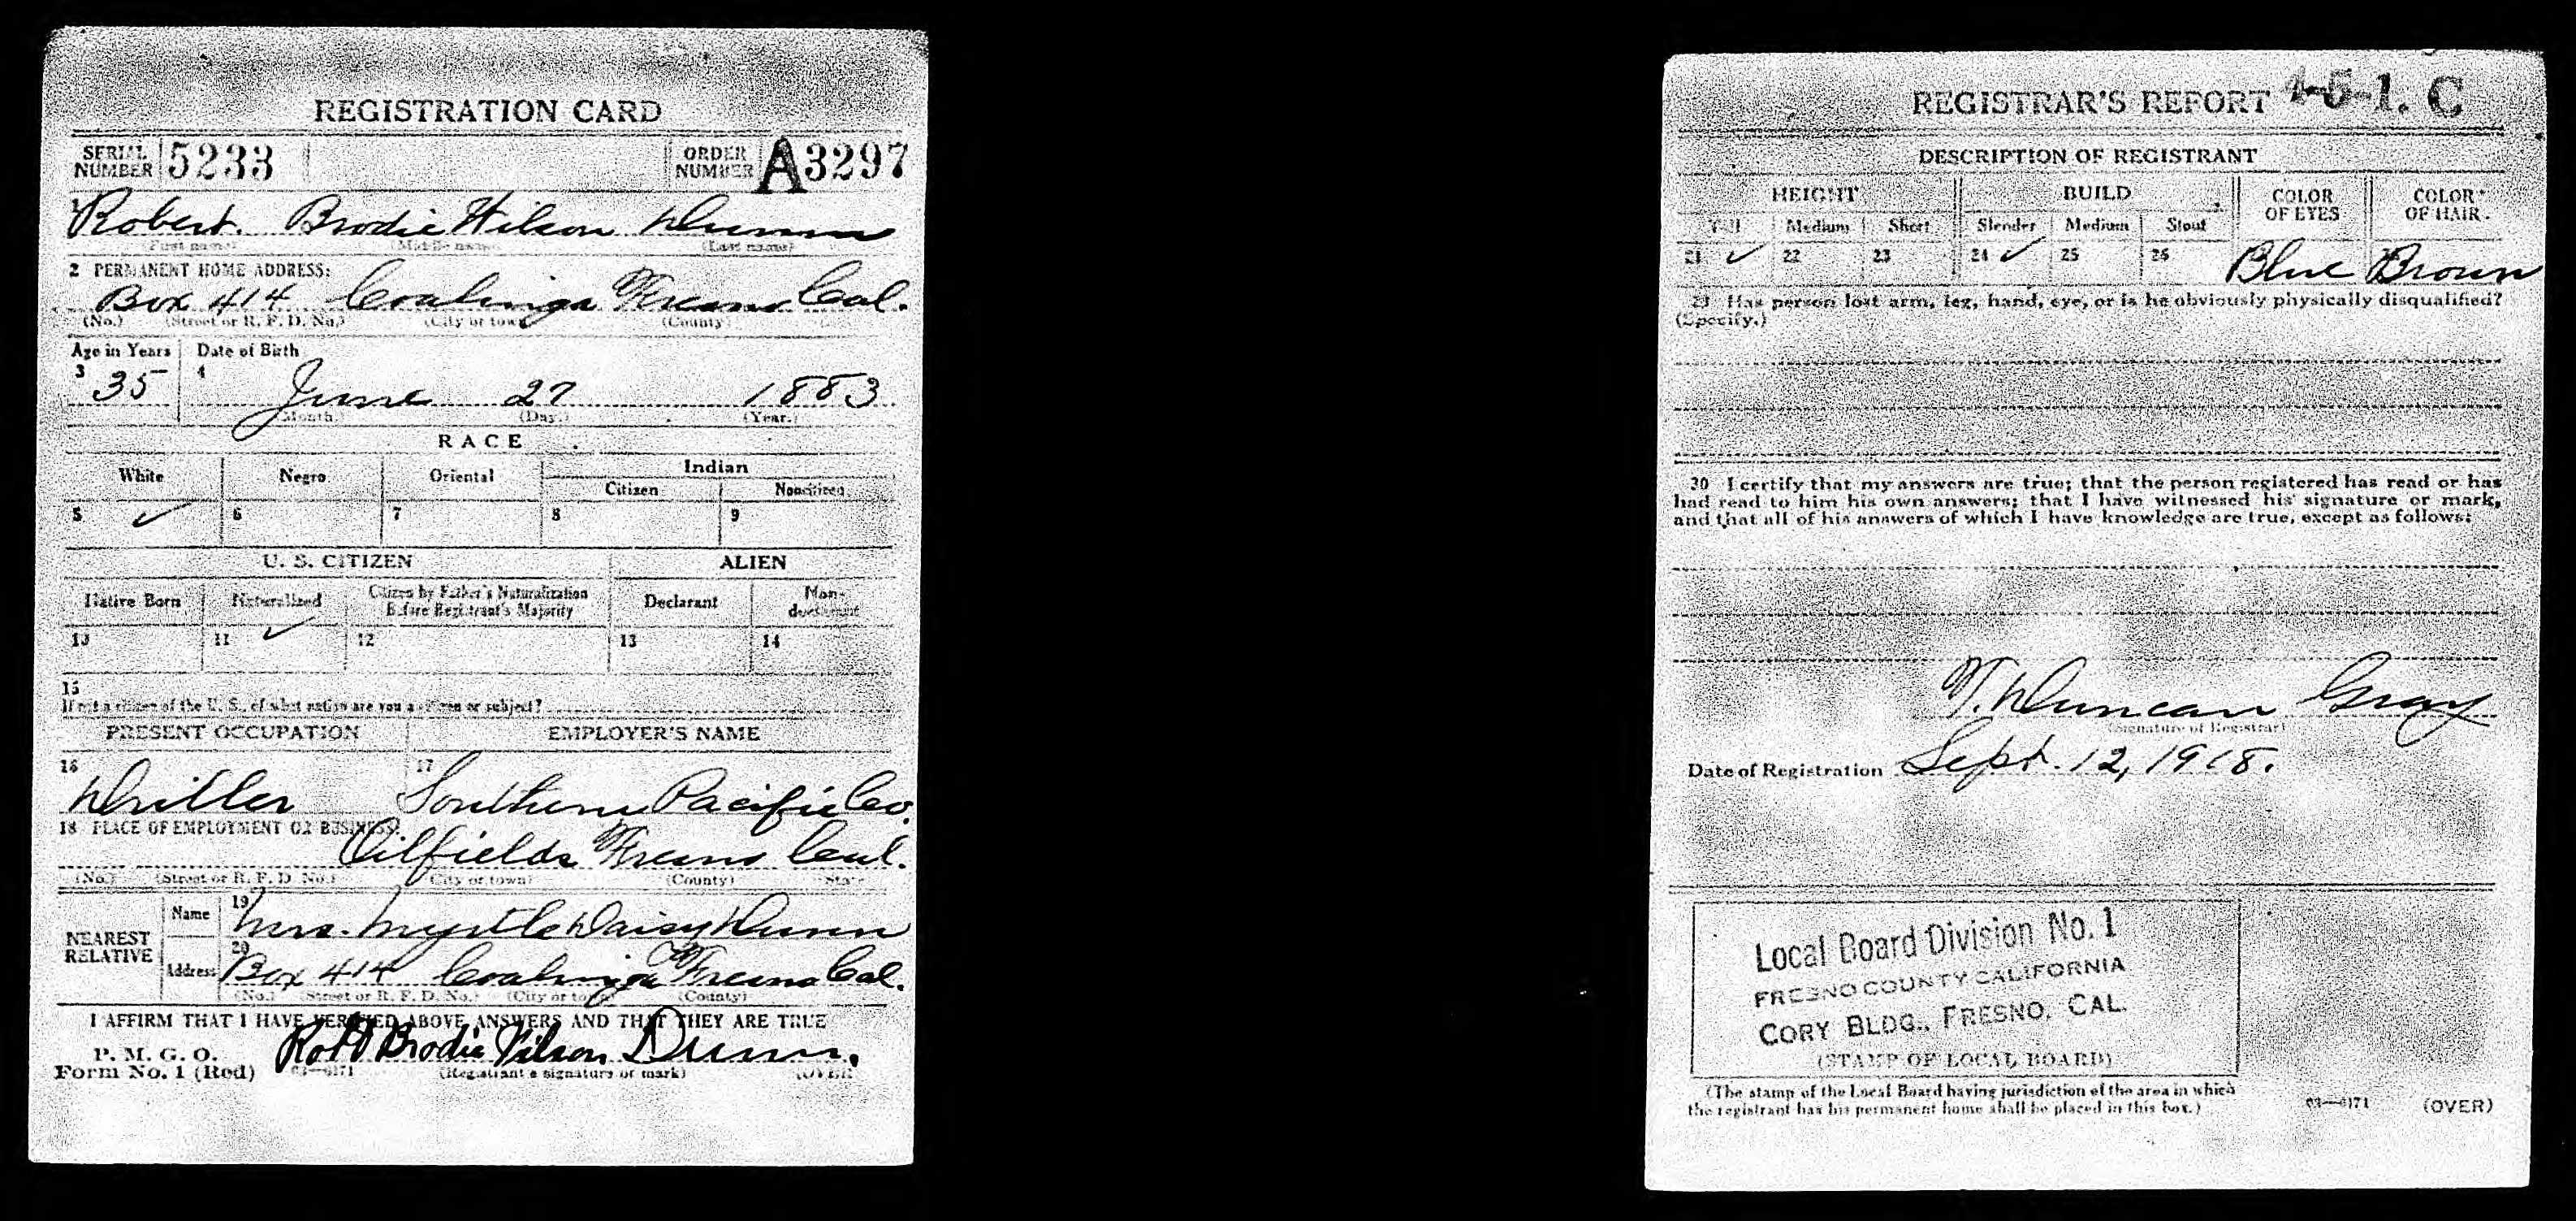 REGISTRATION CARD
SERIAL NUMBER 5233 ORDER NUMBER A3297
1 Robert Brodie Wilson Dunn
(First name) (Middle name) (Last name)
2 PERMANENT HOME ADDRESS:
Box 414 Coalinga Fresno Cal.
(No.) (Street or R. F. D. No.) (City or town) (County)
Age in Years Date of Birth
3 35 4 June 27 1883
(Month.) (Day.) (Year.)
RACE
White Negro Oriental Indian
Citizen Noncitizen
5 ✓ 6 7 8 9
U. S. CITIZEN ALIEN
Native Born Naturalized Citizen by Father's Naturalization Before Registrant's Majority Declarant Non-declarant
10 11 ✓ 12 13 14
15
If not a citizen of the U. S., of what nation are you a citizen or subject?
PRESENT OCCUPATION EMPLOYER'S NAME
16 Driller 17 Southern Pacific Co.
18 PLACE OF EMPLOYMENT OR BUSINESS:
Oilfields Fresno Cal.
(No.) (Street or R. F. D. No.) (City or town) (County) State
NEAREST RELATIVE
Name 19 Mrs. Myrtle Daisy Dunn
Address 20 Box 414 Coalinga Fresno Cal.
(No.) (Street or R. F. D. No.) (City or town) (County)
I AFFIRM THAT I HAVE VERIFIED ABOVE ANSWERS AND THAT THEY ARE TRUE
P. M. G. O.
Form No. 1 (Red) 03—6171 Robt Brodie Wilson Dunn.
(Registrant's signature or mark) (OVER)
REGISTRAR'S REPORT 4-5-1. C
DESCRIPTION OF REGISTRANT
HEIGHT BUILD COLOR OF EYES COLOR OF HAIR
Tall Medium Short Slender Medium Stout
21 ✓ 22 23 24 ✓ 25 26 Blue Brown
29 Has person lost arm, leg, hand, eye, or is he obviously physically disqualified?
(Specify.)
30 I certify that my answers are true; that the person registered has read or has
had read to him his own answers; that I have witnessed his signature or mark,
and that all of his answers of which I have knowledge are true, except as follows:
T. Duncan Gray
(Signature of Registrar)
Date of Registration Sept. 12, 1918.
Local Board Division No. 1
FRESNO COUNTY CALIFORNIA
CORY BLDG., FRESNO, CAL.
(STAMP OF LOCAL BOARD)
(The stamp of the Local Board having jurisdiction of the area in which
the registrant has his permanent home shall be placed in this box.)
03—6171 (OVER)